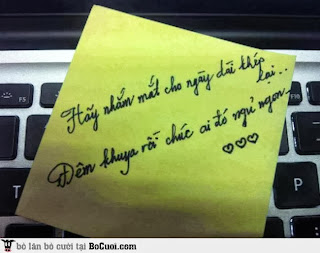 Hãy nhắm mắt cho ngày dài khép
lại...
Đêm khuya rồi chúc ai đó ngủ ngon...
♡♡♡
F5
bò lăn bò cười tại BoCuoi.com